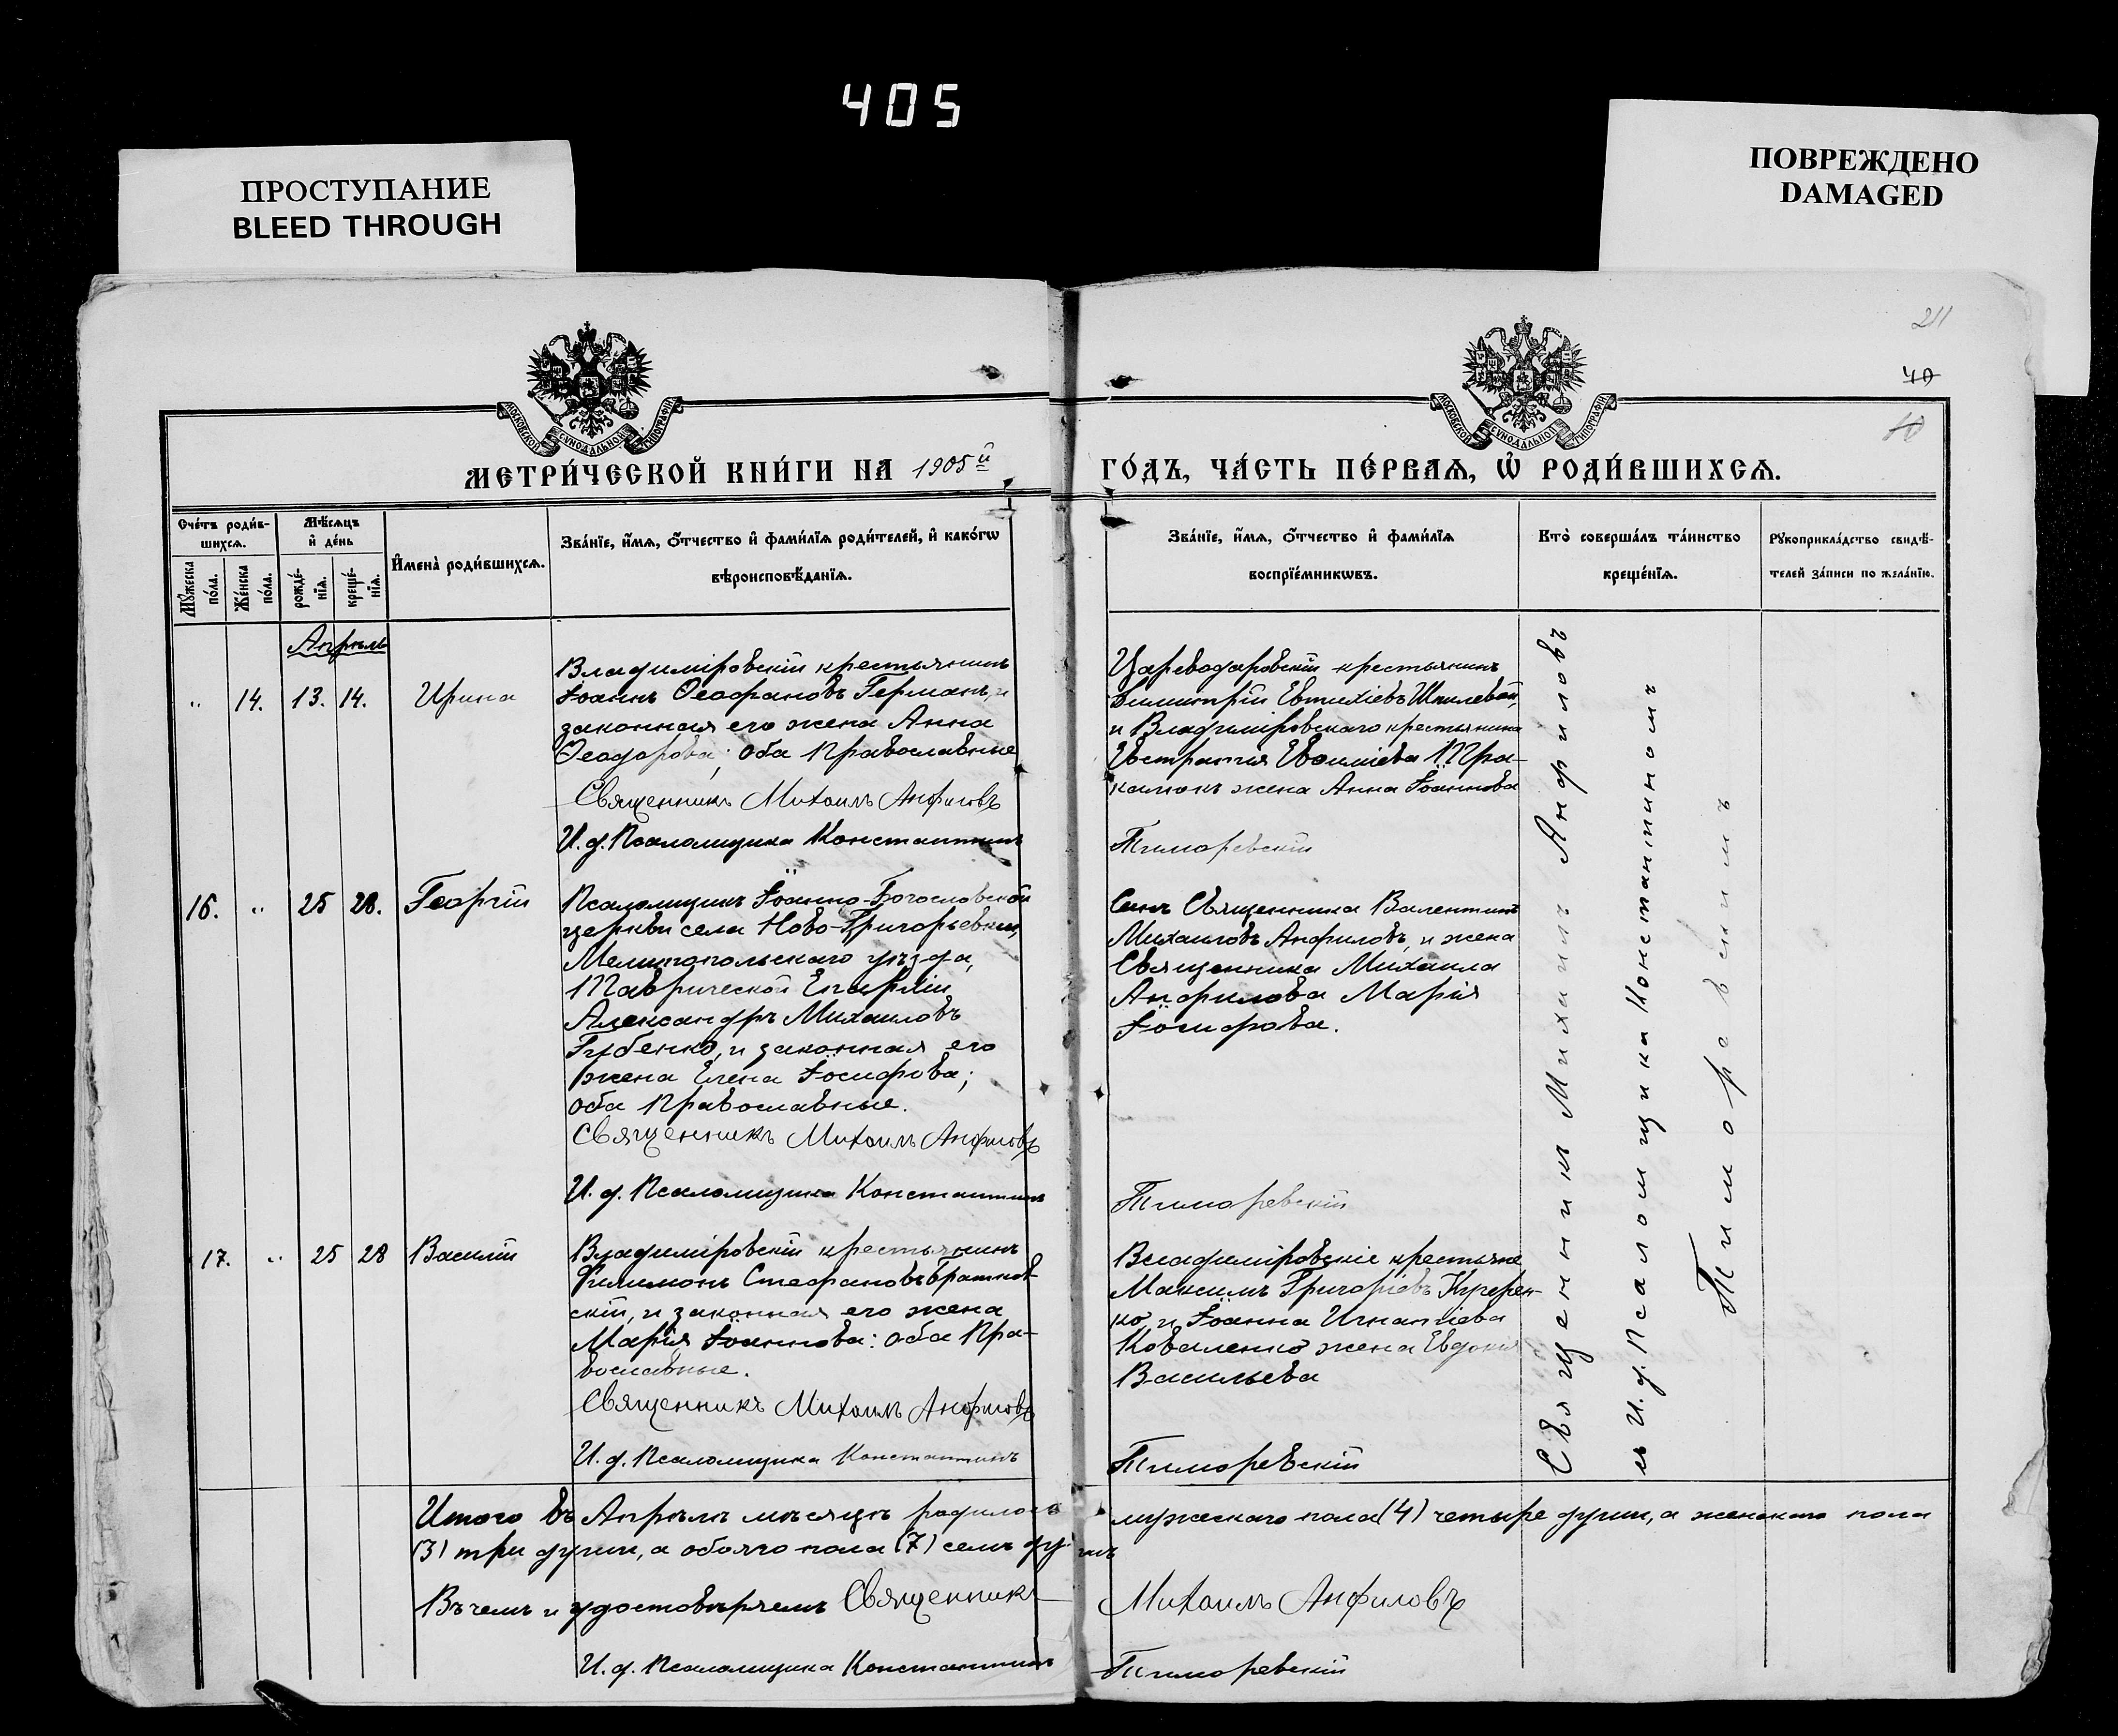 405
ПРОСТУПАНИЕ
BLEED THROUGH
ПОВРЕЖДЕНО
DAMAGED
211
40
МОСКОВСКОЙ СѴНОДАЛЬНОЙ ТИПОГРАФІИ
МОСКОВСКОЙ СѴНОДАЛЬНОЙ ТИПОГРАФІИ
МЕТРИ́ЧЕСКОЙ КНИ́ГИ НА 1905й
ГО́ДЪ, ЧА́СТЬ ПЕ́РВАѦ, Ѡ҆ РОДИ́ВШИХСѦ.
Сче́тъ роди́в-
шихсѧ.
Мѣ́сѧцъ
и҆ де́нь
Мꙋ́жеска
по́ла.
Же́нска
по́ла.
рожде́-
нїѧ.
креще́-
нїѧ.
И҆мена̀ роди́вшихсѧ.
Зва́нїе, и҆́мѧ, ѻ҆́тчество и҆ фами́лїѧ роди́телей, и҆ како́гѡ
вѣроисповѣ́данїѧ.
Зва́нїе, и҆́мѧ, ѻ҆́тчество и҆ фами́лїѧ
воспрїе́мникѡвъ.
Кто̀ соверша́лъ та́инство
креще́нїѧ.
Рꙋкоприкла́дство свидѣ́-
телей за́писи по жела́нїю.
Апрѣль
" 14. 13. 14. Ирина
Владиміровскій крестьянинъ
Іоаннъ Ѳеофановъ Германъ, и
законная его жена Анна
Ѳеодорова; оба Православные
Священникъ Михаилъ Анфиловъ
И. д. Псаломщика Константинъ
Цареводаровскій крестьянинъ
Димитрій Евтихіевъ Шпилевой,
и Владиміровскаго крестьянина
жена Анна Іоаннова
Тиморевскій
16. " 25 28. Георгій
Псаломщикъ Іоанно-Богословской
церкви села Ново-Григорьевки,
Мелитопольскаго уѣзда,
Таврической Епархіи
Александръ Михаиловъ
Губенко, и законная его
жена Елена Іосифова;
оба Православные.
Священникъ Михаилъ Анфиловъ
И. д. Псаломщика Константинъ
Сынъ Священника Валентинъ
Михаиловъ Анфиловъ, и жена
Священника Михаила
Анфилова Марія
Іосифова.
Тиморевскій
17. " 25 28 Василій
Владиміровскій крестьянинъ
Филимонъ Стефановъ Братков-
скій, и законная его жена
Марія Іоаннова: оба Пра-
вославные.
Священникъ Михаилъ Анфиловъ
И. д. Псаломщика Константинъ
Владиміровскіе крестьяне
Максимъ Григоріевъ
ко, и Іоанна Игнатіева
Коваленко жена Евдокія
Васильева
Тиморевскій
Священникъ Михаилъ Анфиловъ
съ И. д. Псаломщика Константиномъ
Тиморевскимъ
Итого въ Апрѣлѣ мѣсяцѣ родилось мужескаго пола (4) четыре души, а женскаго пола
(3) три души, а обоего пола (7) семь душъ
Въ чемъ и удостовѣряемъ Священникъ Михаилъ Анфиловъ
И. д. Псаломщика Константинъ Тиморевскій